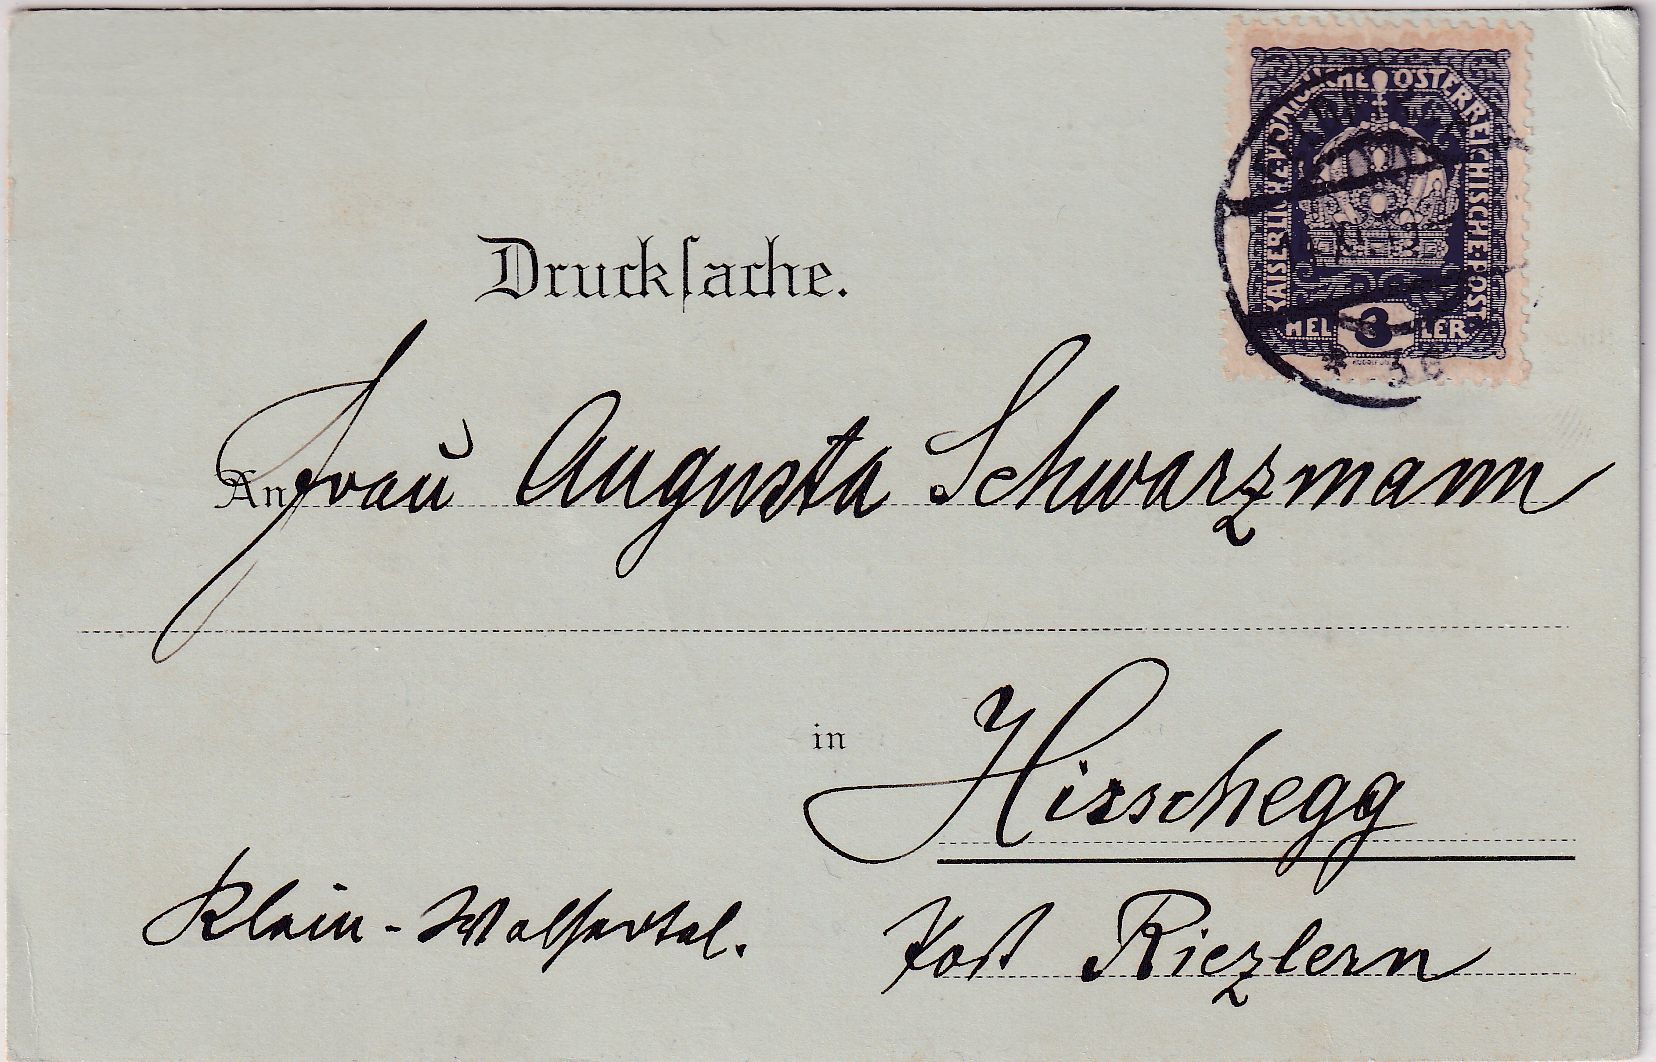 KAISERLICHE·KÖNIGLICHE·ÖSTERREICHISCHE·POST
HELLER
3
Drucksache.
An Frau Augusta Schwarzmann
in Hirschegg
Klein-Walsertal. Post Riezlern